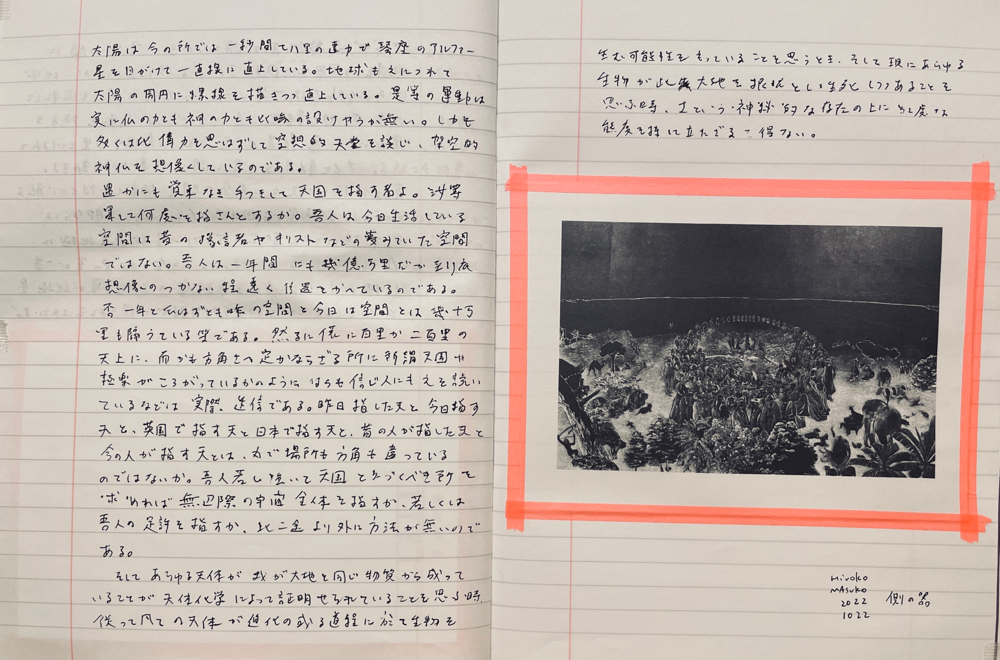 太陽は今の所では一秒間で八里の速力で琴座のアルファー
星を目がけて一直線に直上している。地球もそれにつれて
太陽の周囲に螺線を描きつつ直上している。是等の運動は
実に仏の力とも神の力とも比喩の設けやうが無い。しかも
多くは此偉力を思はずして空想的天堂を談じ、架空的
神仏を想像しているのである。
愚かにも覚束なき手つきをして天国を指す者よ。汝等
果して何処を指さんとするか。吾人は今日生活している
空間は昔の予言者やキリストなどの夢みていた空間
ではない。吾人は一年間にも幾億万里だか到底
想像のつかない程遠く位置をかへているのである。
否一年と云はずとも昨の空間と今日の空間とは幾十万
里も隔っている筈である。然るに僅に百里か二百里の
天上に、而かも方角さへ定かならざる所に所謂天国や
極楽がころがっているかのように自らも信じ人にもそを説い
ているなどは実際、迷信である。昨日指した天と今日指す
天と、英国で指す天と日本で指す天と、昔の人が指した天と
今の人が指す天とは、丸で場所も方角も違っている
のではないか。吾人若し強いて天国と名づくべき所を
求めれば無辺際の宇宙全体を指すか、若しくは
吾人の足許を指すか、此二途より外に方法が無いので
ある。
そして あらゆる天体が我が大地と同じ物質から成って
いることが天体化学によって証明せられていることを思ふ時、
従って凡ての天体が進化の或る道程に於て生物を
生む可能性をもっていることを思うとき、そして現にあらゆる
生物が此大地を根拠とし生死しつつあることを
思ふ時、土という神秘的な存在の上に
態度を持に立たざるを得ない。
Hiroko
Masuko
2022
1022
側の器